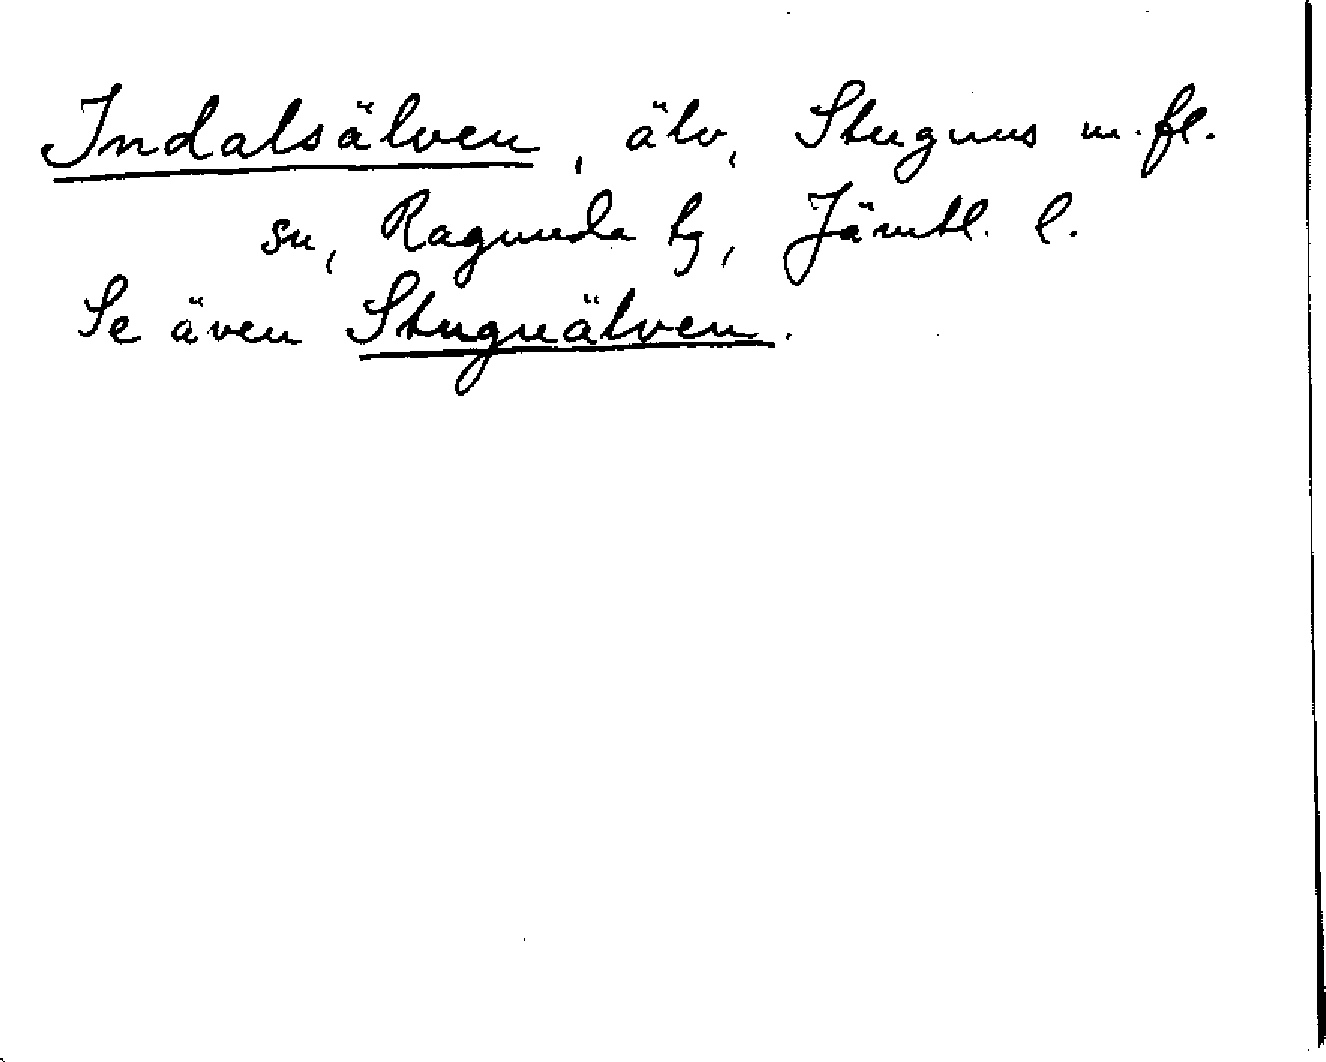 Indalsälven, älv, Stuguns m.fl.
sn, Ragunda tg, Jämtl. l.
Se även Stuguälven.